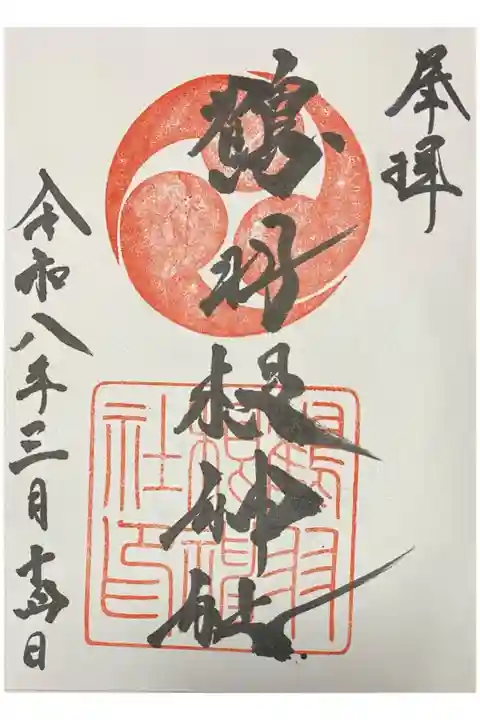 奉拝
鶴羽根神社
鶴羽
根神
社印
令和八年三月十四日